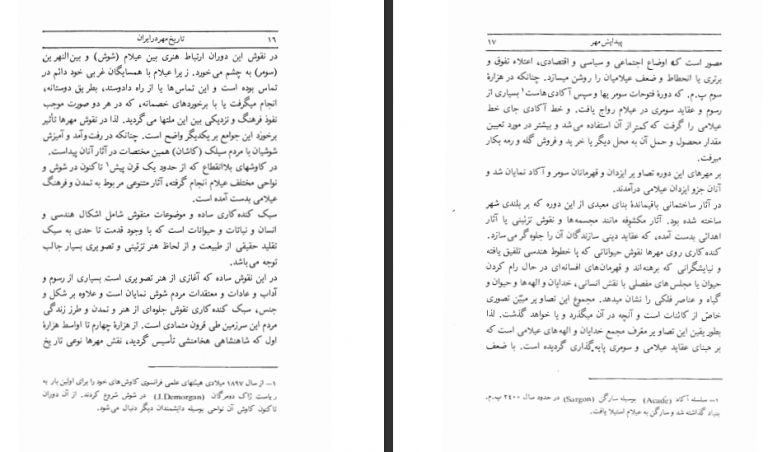 ۱۶ تاریخ مهر در ایران
در نقوش این دوران ارتباط هنری بین عیلام (شوش) و بین‌النهرین
(سومر) به چشم می‌خورد. زیرا عیلام با همسایگان غربی خود دائم در
تماس بوده است و این تماس‌ها یا از راه دادوستد، بطریق دوستانه،
انجام میگرفت یا با برخوردهای خصمانه، که در هر دو صورت موجب
نفوذ فرهنگ و نزدیکی بین این ملتها می‌گردید. لذا در نقوش مهرها تأثیر
برخورد این جوامع بر یکدیگر واضح است. چنانکه در رفت‌وآمد و آمیزش
شوشیان با مردم سیلک (کاشان) همین مختصات در آثار آنان پیداست.
در کاوشهای بلاانقطاع که از حدود یک قرن پیش۱ تاکنون در شوش و
نواحی مختلف عیلام انجام گرفته، آثار متنوعی مربوط به تمدن و فرهنگ
عیلامی بدست آمده است.
سبک کنده‌کاری ساده و موضوعات منقوش شامل اشکال هندسی و
انسان و نباتات و حیوانات است که با وجود قدمت تا حدی به سبک
تقلید حقیقی از طبیعت و از لحاظ هنر تزئینی و تصویری بسیار جالب
توجه می‌باشد.
در این نقوش ساده که آغازی از هنر تصویری است بسیاری از رسوم و
آداب و عادات و معتقدات مردم شوش نمایان است و علاوه بر شکل و
جنس، سبک کنده‌کاری نقوش جلوه‌ای از هنر و تمدن و طرز زندگی
مردم این سرزمین طی قرون متمادی است. از هزارهٔ چهارم تا اواسط هزارهٔ
اول که شاهنشاهی هخامنشی تأسیس گردید، نقش مهرها نوعی تاریخ
۱— از سال ۱۸۹۷ میلادی هیئتهای علمی فرانسوی کاوش‌های خود را برای اولین بار به
ریاست ژاک دومرگان (J.Demorgan) در شوش شروع کردند. از آن دوران
تاکنون کاوش آن نواحی بوسیله دانشمندان دیگر دنبال می‌شود.
پیدایش مهر ۱۷
مصور است که اوضاع اجتماعی و سیاسی و اقتصادی، اعتلاء تفوق و
برتری یا انحطاط و ضعف عیلامیان را روشن میسازد. چنانکه در هزارهٔ
سوم پ.م. که دورهٔ فتوحات سومریها و سپس آکادی‌هاست۱ بسیاری از
رسوم و عقاید سومری در عیلام رواج یافت. و خط آکادی جای خط
عیلامی را گرفت که کمتر از آن استفاده می‌شد و بیشتر در مورد تعیین
مقدار محصول و حمل آن به محل دیگر یا خرید و فروش گله و رمه بکار
میرفت.
بر مهرهای این دوره تصاویر ایزدان و قهرمانان سومر و آکاد نمایان شد و
آنان جزو ایزدان عیلامی درآمدند.
در آثار ساختمانی باقیماندهٔ بنای معبدی از این دوره که بر بلندی شهر
ساخته شده بود، آثار مکشوفه مانند مجسمه‌ها و نقوش تزئینی یا آثار
اهدائی بدست آمده، که عقاید دینی سازندگان آن را جلوه‌گر می‌سازد.
کنده‌کاری روی مهرها نقوش حیواناتی که با خطوط هندسی تلفیق یافته
و نیایشگرانی که برهنه‌اند و قهرمان‌های افسانه‌ای در حال رام کردن
حیوان یا مجلس‌های مفصلی با نقش انسانی، خدایان و الهه‌ها و حیوان و
گیاه و عناصر فلکی را نشان میدهد. مجموع این تصاویر مبیّن تصوری
خاص از کائنات است و آنچه در آن میگذرد و یا خواهد گذشت. لذا
بطور یقین این تصاویر معرف مجمع خدایان و الهه‌های عیلامی است که
بر مبنای عقاید عیلامی و سومری پایه‌گذاری گردیده است. با ضعف
۱— سلسله آکاد (Acade) بوسیله سارگن (Sargon) در حدود سال ۲۴۰۰ پ.م.
بنیاد گذاشته شد و سارگن به عیلام استیلا یافت.